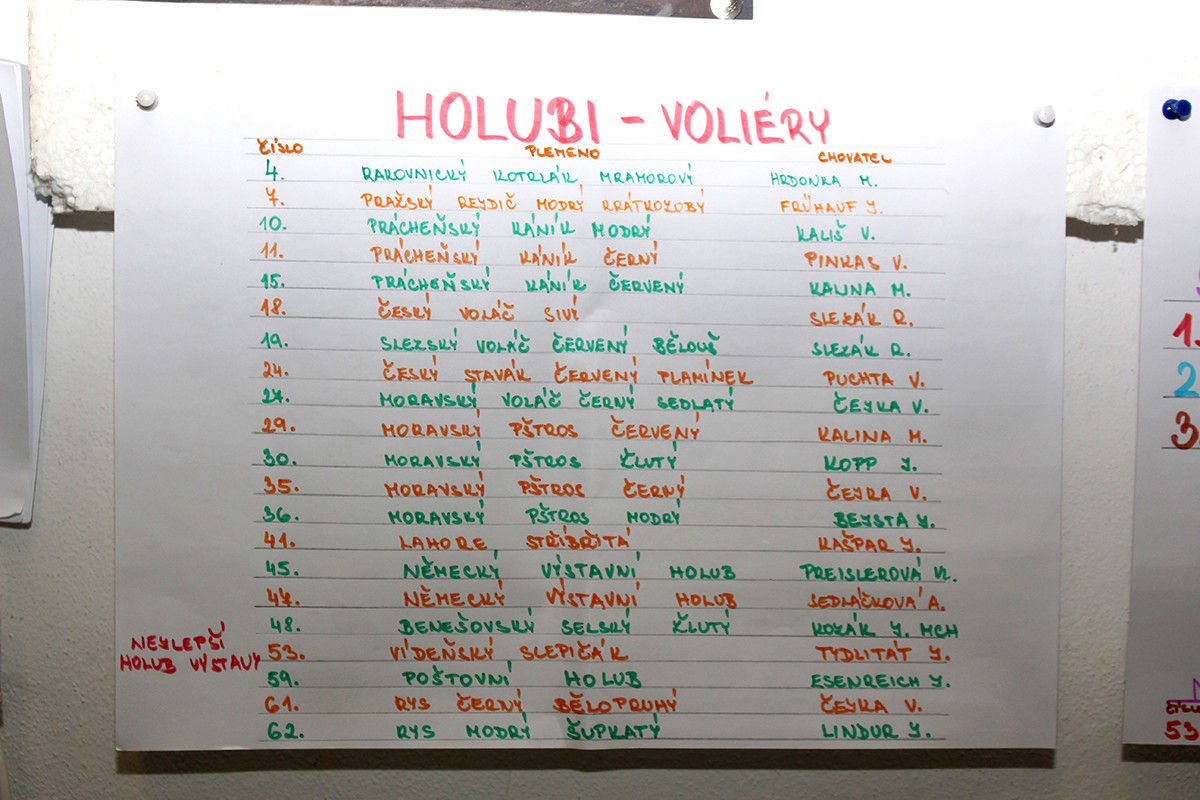 HOLUBI - VOLIÉRY
ČÍSLO PLEMENO CHOVATEL
4. RAKOVNICKÝ KOTRLÁK MRAMOROVÝ HRDONKA M.
7. PRAŽSKÝ REJDIČ MODRÝ KRÁTKOZOBÝ FRÜHAUF J.
10. PRÁCHEŇSKÝ KÁNÍK MODRÝ KALIŠ V.
11. PRÁCHEŇSKÝ KÁNÍK ČERNÝ PINKAS V.
15. PRÁCHEŇSKÝ KÁNÍK ČERVENÝ KALINA M.
18. ČESKÝ VOLÁČ SIVÍ SLEZÁK R.
19. SLEZSKÝ VOLÁČ ČERVENÝ BĚLOUŠ SLEZÁK R.
24. ČESKÝ STAVÁK ČERVENÝ PLAMÍNEK PUCHTA V.
27. MORAVSKÝ VOLÁČ ČERNÝ SEDLATÝ ČEJKA V.
29. MORAVSKÝ PŠTROS ČERVENÝ KALINA M.
30. MORAVSKÝ PŠTROS ŽLUTÝ KOPP J.
35. MORAVSKÝ PŠTROS ČERNÝ ČEJKA V.
36. MORAVSKÝ PŠTROS MODRÝ BEJSTA J.
41. LAHORE STŘÍBŘITÁ KAŠPAR J.
45. NĚMECKÝ VÝSTAVNÍ HOLUB PREISLEROVÁ VL.
47. NĚMECKÝ VÝSTAVNÍ HOLUB SEDLÁČKOVÁ A.
48. BENEŠOVSKÝ SELSKÝ ŽLUTÝ KOZÁK J. MCH
NEJLEPŠÍ
HOLUB VÝSTAVY
53. VÍDEŇSKÝ SLEPIČÁK TYDLITÁT J.
59. POŠTOVNÍ HOLUB ESENREICH J.
61. RYS ČERNÝ BĚLOPRUHÝ ČEJKA V.
62. RYS MODRÝ ŠUPKATÝ LINDUR J.
1.
2
3
53